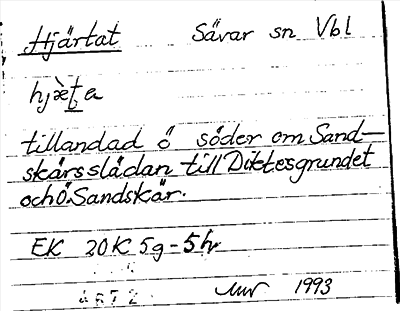 Hjärtat Sävar sn Vbl
hjæ̀ṯa
tillandad ö söder om Sand-
skärsslädan till Diktesgrundet
och ö Sandskär.
EK 20K 5g-5h
1993